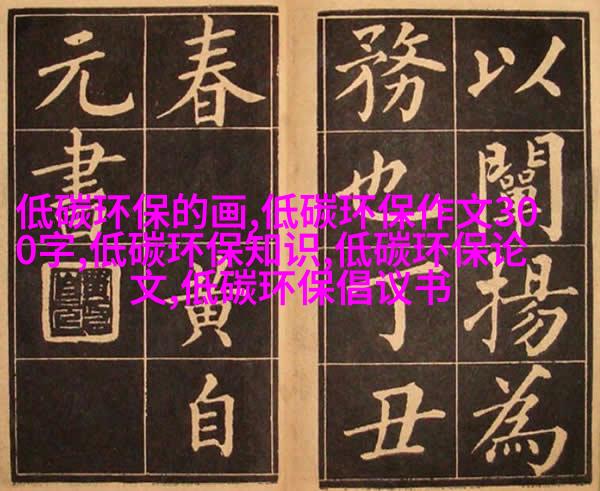 以闡揚為
務也丁丑
春黃自
元書
低碳环保的画,低碳环保作文30
0字,低碳环保知识,低碳环保论
文,低碳环保倡议书